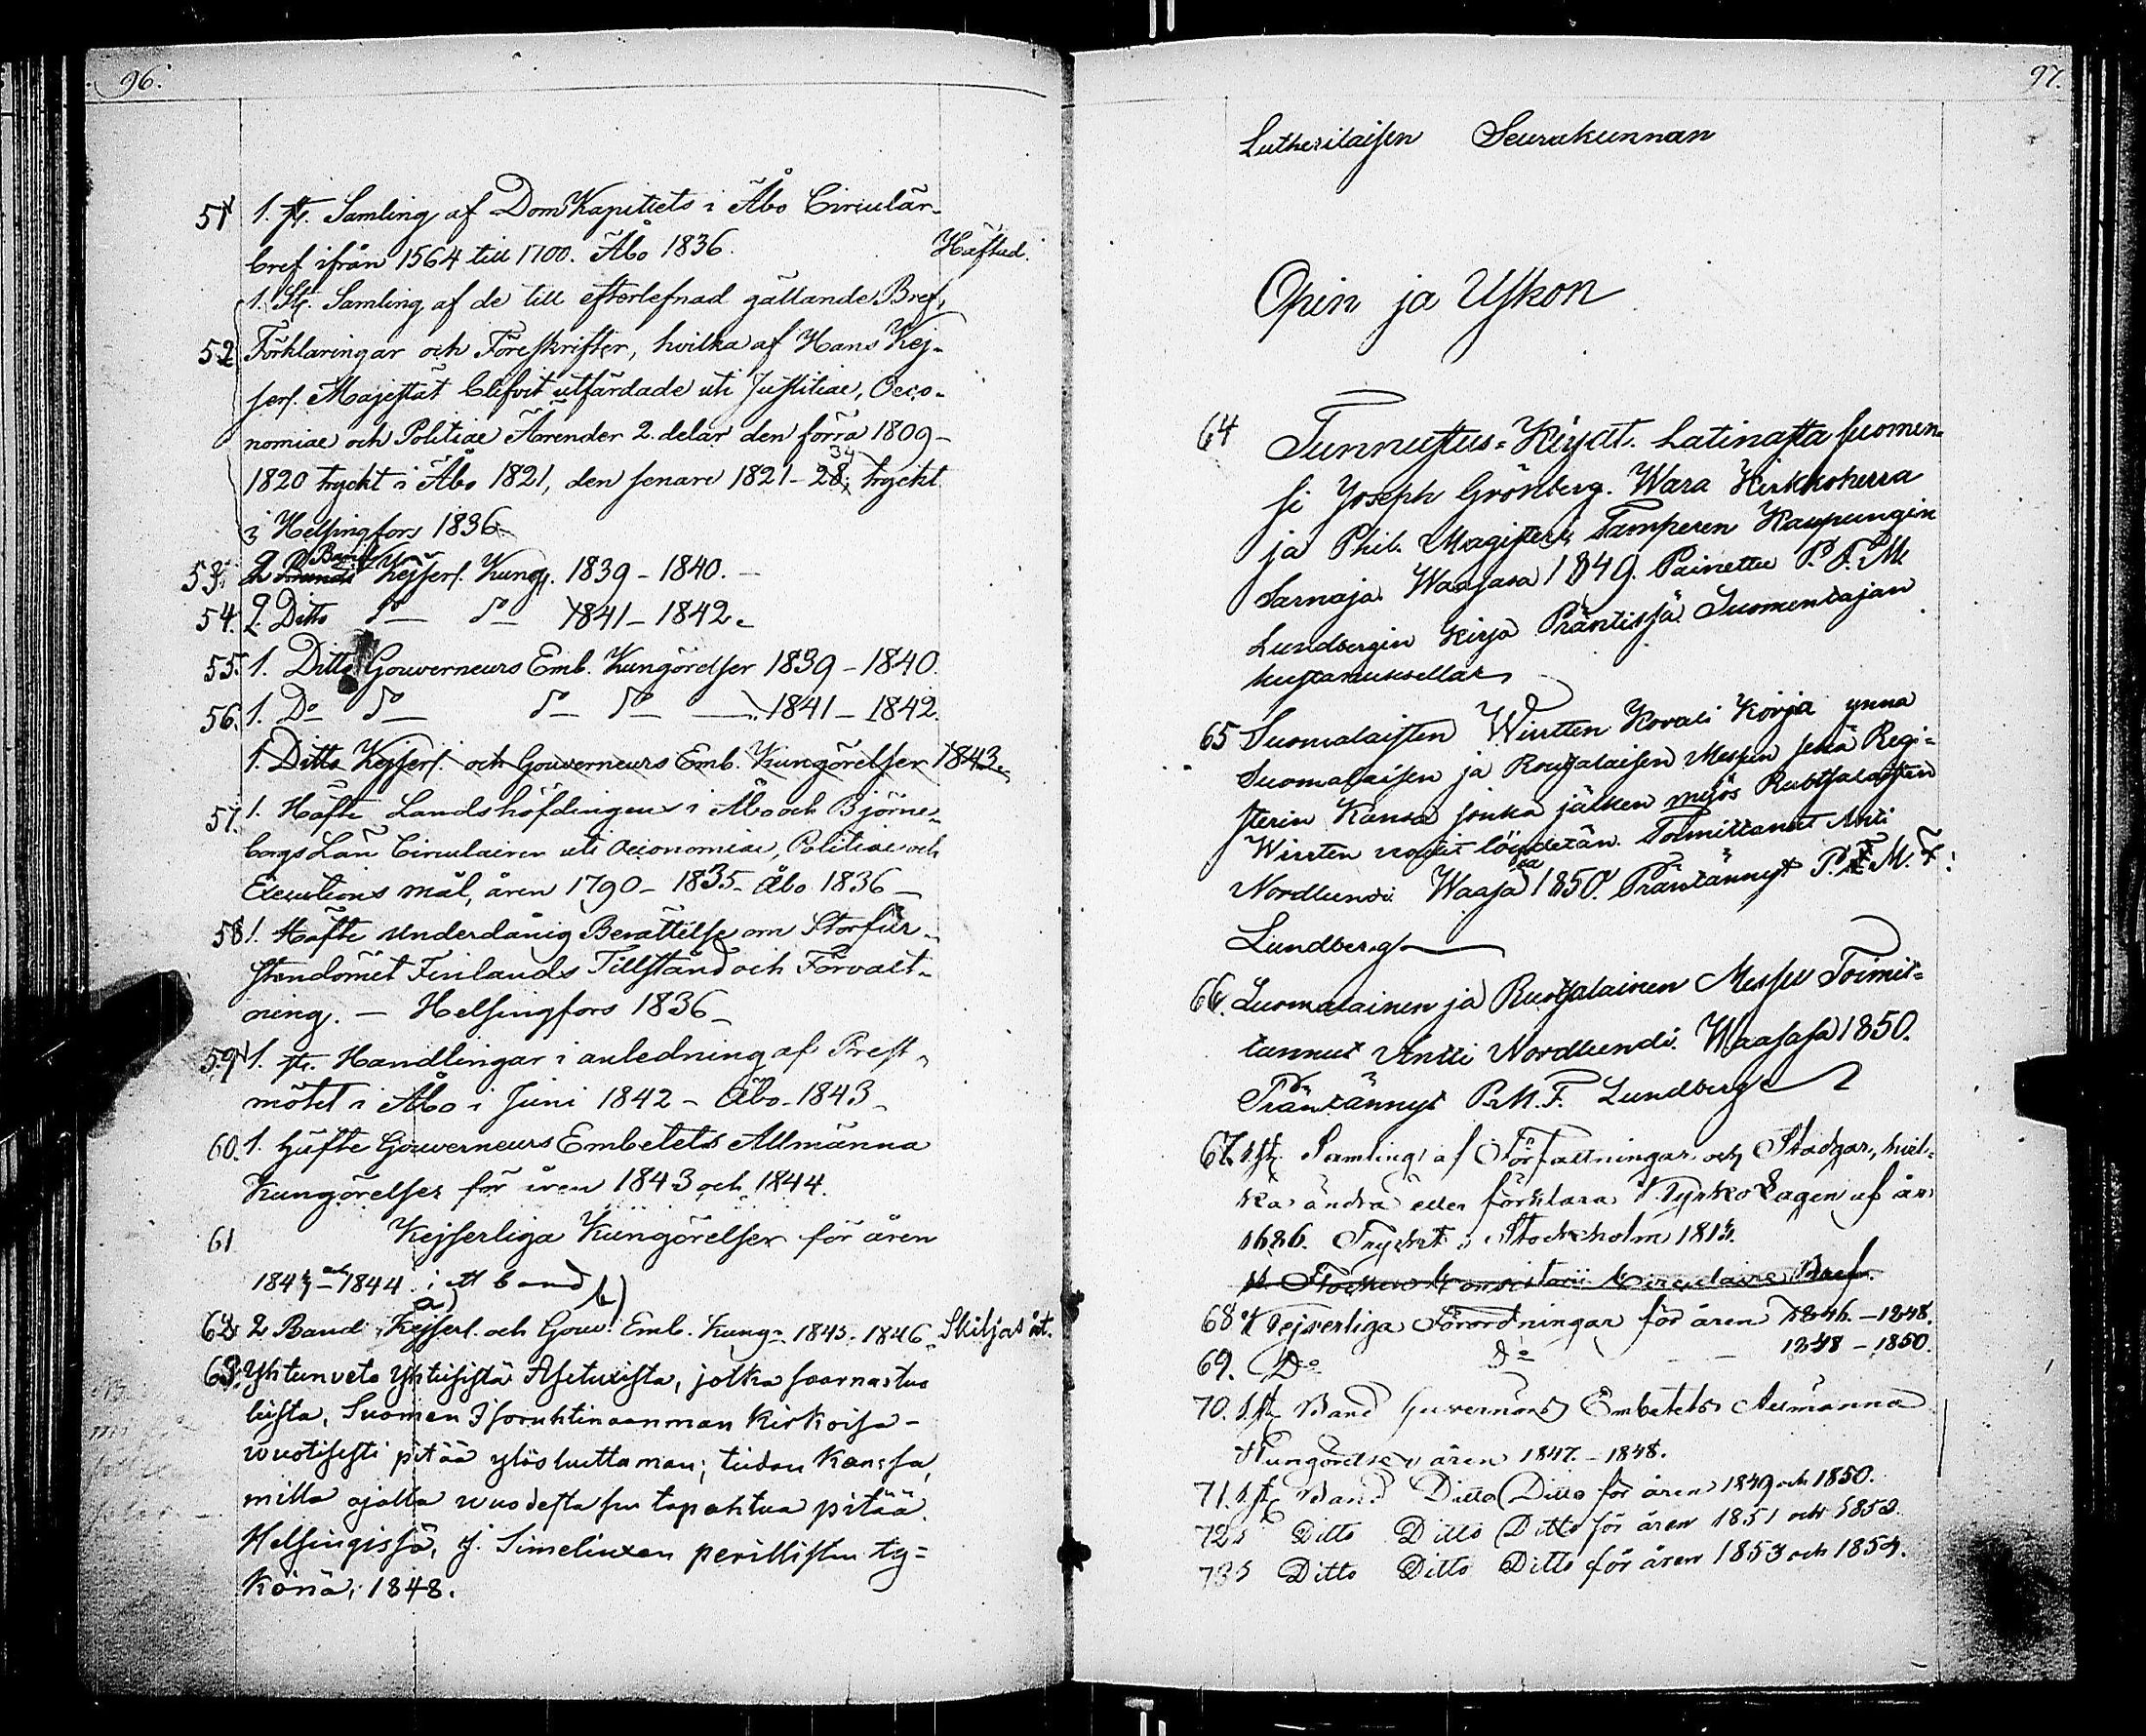 96.
51 1. st. Samling af DomKapitlets i Åbo Circulär-
bref ifrån 1564 till 1700. Åbo 1836. Häftad.
1. St. Samling af de till efterlefnad gällande Bref,
52 Förklaringar och Föreskrifter, hvilka af Hans Kej-
serl. Majestät blifvit utfärdade uti Justitiae, Oeco-
nomiae och Politiae Ärender 2. delar den förra 1809-
1820 tryckt i Åbo 1821, den senare 1821-28. 34 tryckt
i Helsingfors 1836.
53. 2 Band Kejserl. Kung. 1839-1840. -
54. 2. Ditto do do 1841-1842.
55. 1. Ditto Gouverneurs Emb. Kungörelser 1839-1840.
56. 1. Do do do do 1841-1842.
1. Ditto Kejserl. och Gouverneurs Emb. Kungörelser 1843.
57. 1. Häfte Landshöfdingens i Åbo och Björne-
borgs Län Circulairer uti Oeconomiae, Politiae och
Executions mål, åren 1790-1835. Åbo 1836-
58 1. Häfte Underdånig Berättelse om Storfur-
stendömet Finlands Tillstånd och Förvalt-
ning. - Helsingfors 1836-
59 1. st. Handlingar i anledning af Prest-
mötet i Åbo i Juni 1842- Åbo 1843-
60. 1. häfte Gouverneurs Embetets Allmänna
Kungörelser för åren 1843 och 1844.
61 Kejserliga Kungörelser för åren
1843 och 1844. i ett band
62 2 Band a) Kejserl. och Gouv. b) Emb. Kung. 1845. 1846. Skiljas åt.
63. Yhtenveto Yhteisistä Asetuxista, jotka saarnastuo
leista, Suomen Isoruhtinaanman Kirkoisa-
wuotisesti pitää ylösluettaman; tiedon kanssa,
milla ajalla wuodesta sen tapahtua pitää.
Helsingissä, J. Simeliuxen perillisten ty=
könä, 1848.
97.
Lutherilaisen Seurakunnan
Opin ja Uskon
64 Tunnustus=Kirjat. Latinasta suomen=
si Joseph Grönberg. Wara Kirkkoherra
ja Phil. Magisteri, Tamperen Kaupungin
Sarnaja. Waasasa 1849. Painettu P. F. M.
Lundbergin Kirja Präntissä. Suomentajan
kustanuksellas
65 Suomalaisten Wirtten Korali Kirja ynna
Suomalaisen ja Routsalaisen Messun sekä Regi=
sterin Kansa jonka jälken myös Rubtsalaisten
Wirsten nogit löydetän. Toimittanut Anti
Nordlundi Waasa sa 1850. Präntännyt P. M. F.
Lundberg
66. Suomalainen ja Ruotsalainen Messu Toimit=
tannut Antti Nordlundi. Waasasa 1850.
Präntännyt P. M. F. Lundberg
67. 1 st. Samling af Författningar och Stadgar, hvil=
ka ändra eller förklara KyrkoLagen af år
1686. Tryckt i Stockholm 1813.
Consistorii Circulaire Bref.
68 Kejserliga Förordningar för åren 1846.-1848.
69. Do do 1848-1850.
70. 1 st. Band Guvernörs Embetets Allmänna
Kungörelser åren 1847.-1848.
71. 1 st. Band Ditto Ditto för åren 1849 och 1850.
72 1 Ditto Ditto Ditto för åren 1851 och 1852.
73 1 Ditto Ditto Ditto för åren 1853 och 1854.